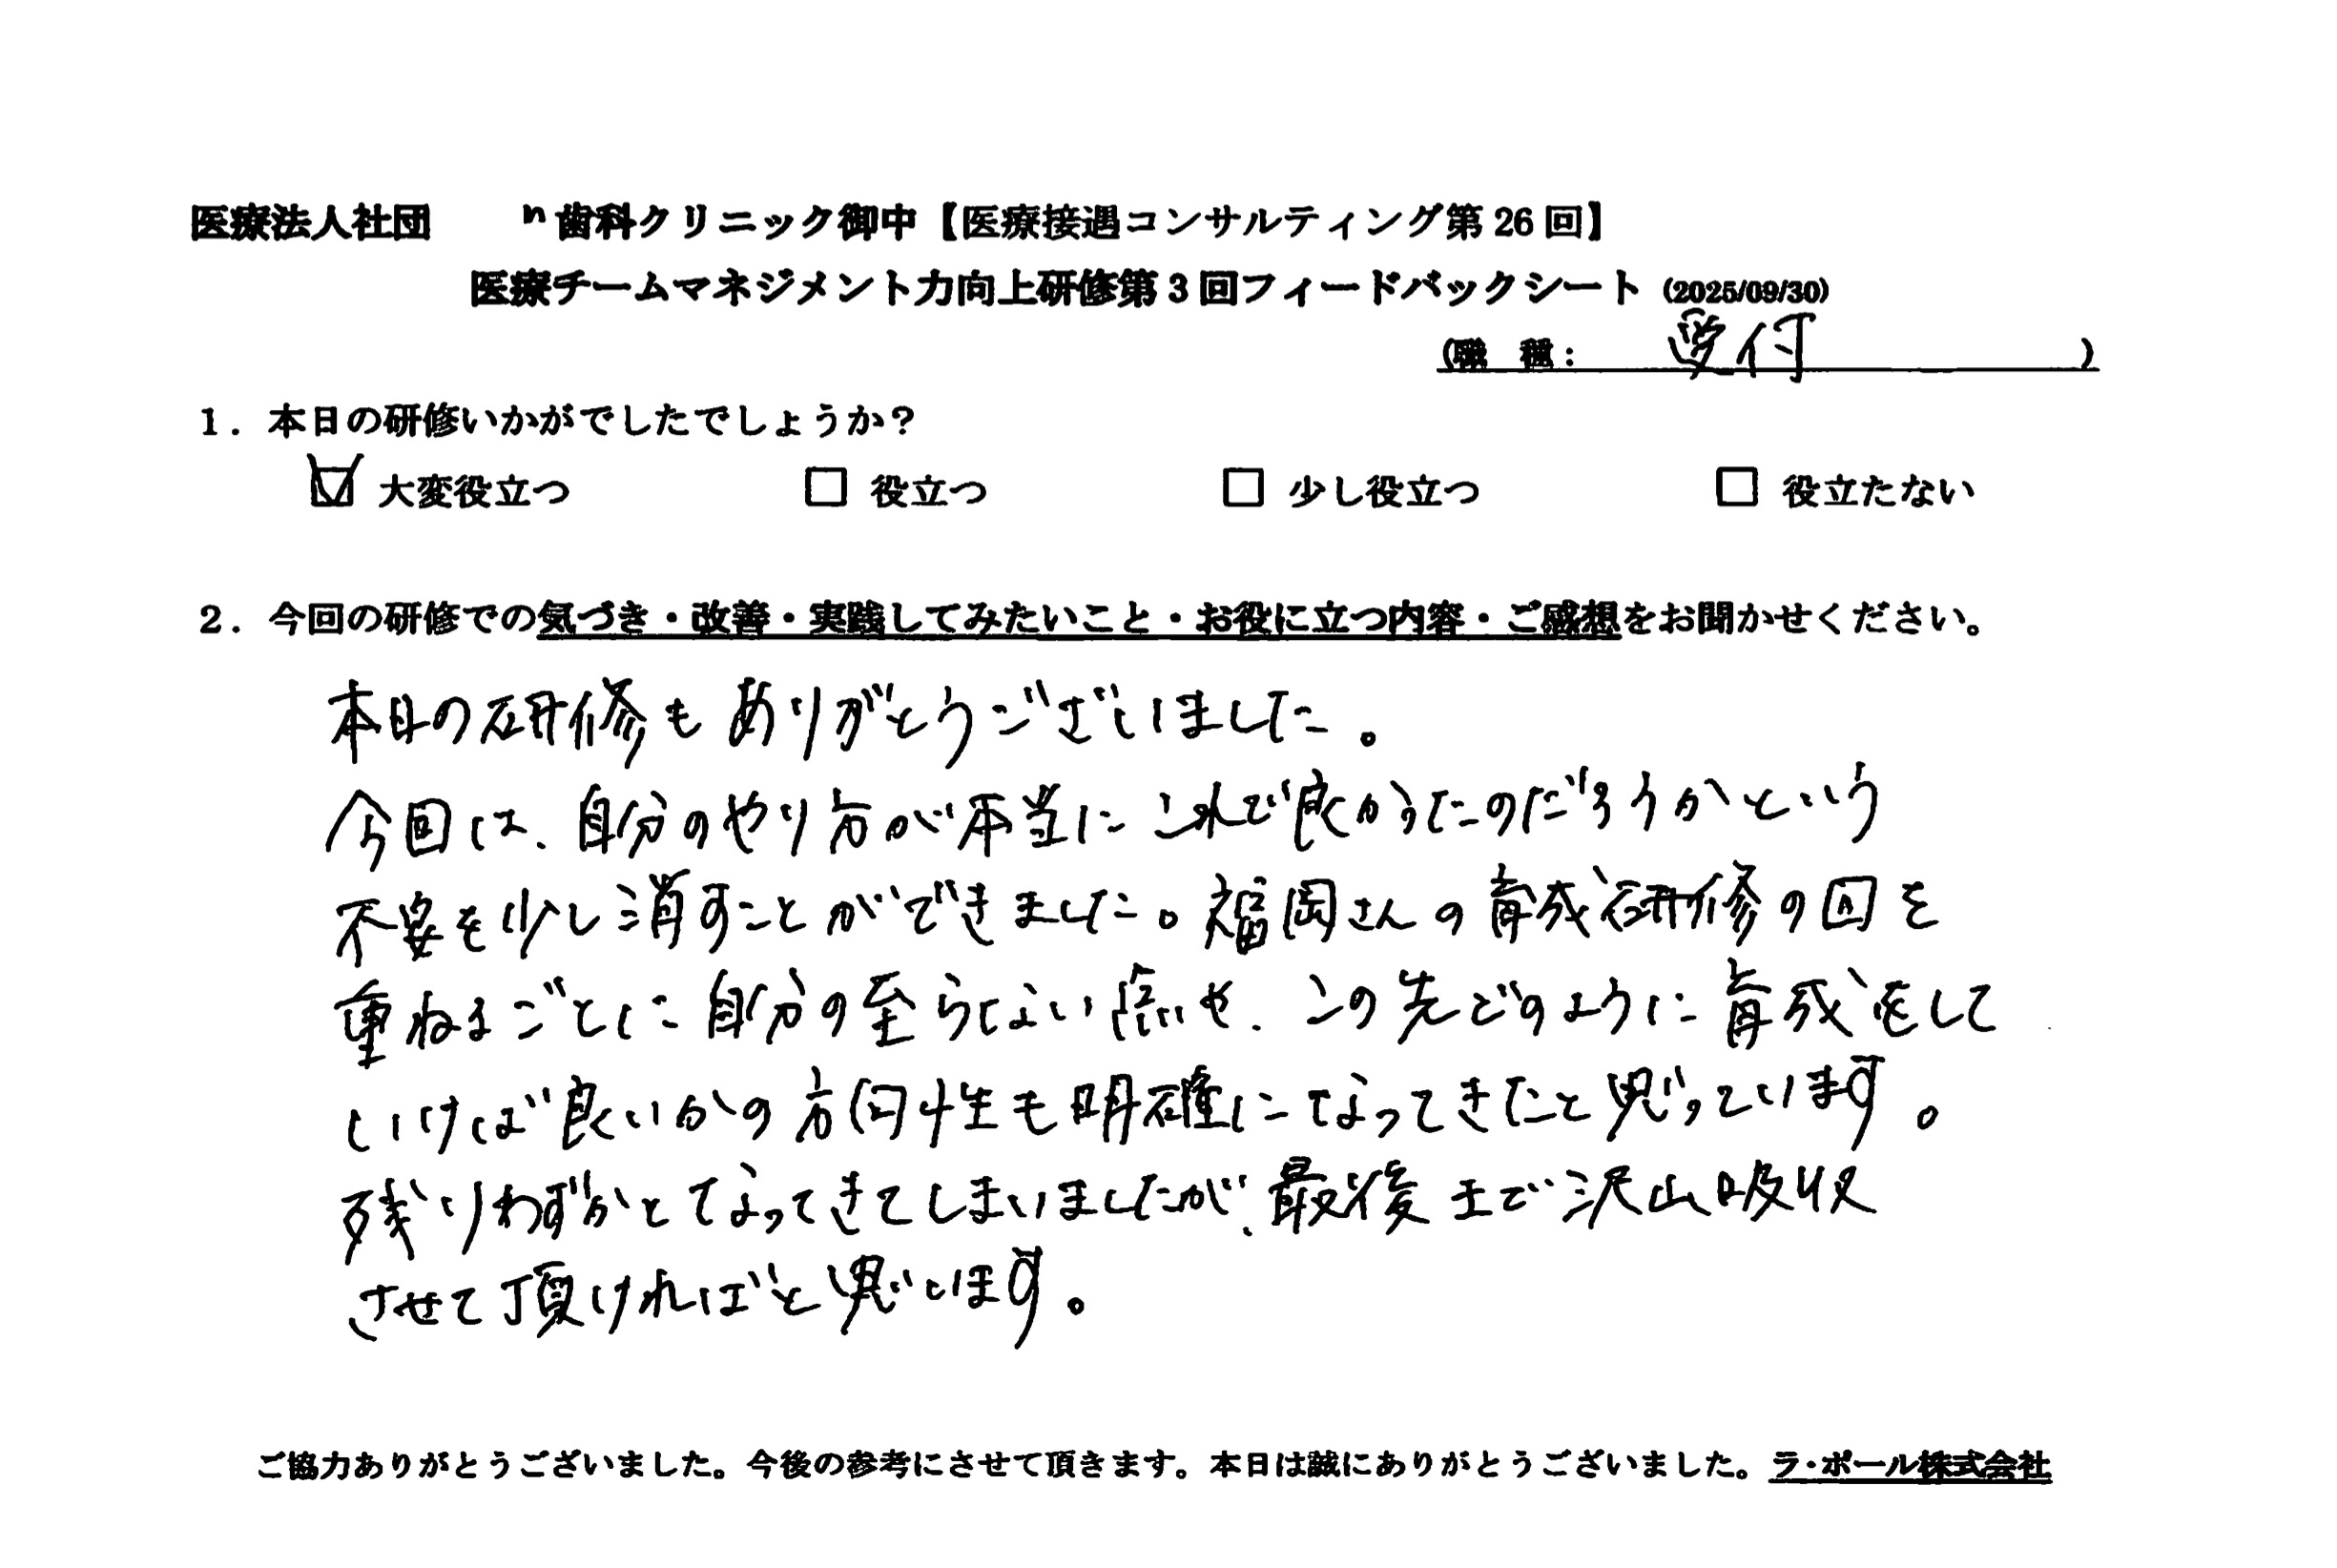 医療法人社団 n歯科クリニック御中【医療接遇コンサルティング第26回】
医療チームマネジメント力向上研修第3回フィードバックシート (2025/09/30)
(職 種: 受付 )
1. 本日の研修いかがでしたでしょうか?
☑ 大変役立つ □ 役立つ □ 少し役立つ □ 役立たない
2. 今回の研修での気づき・改善・実践してみたいこと・お役に立つ内容・ご感想をお聞かせください。
本日の研修もありがとうございました。
今回は、自分のやり方が本当にこれで良かったのだろうかという
不安を少し消すことができました。福岡さんの育成研修の回を
重ねるごとに自分の至らない点や、この先どのように育成をして
いけば良いかの方向性も明確になってきたと思っています。
残りわずかとなってきてしまいましたが、最後まで沢山吸収
させて頂ければと思います。
ご協力ありがとうございました。今後の参考にさせて頂きます。本日は誠にありがとうございました。ラ・ポール株式会社